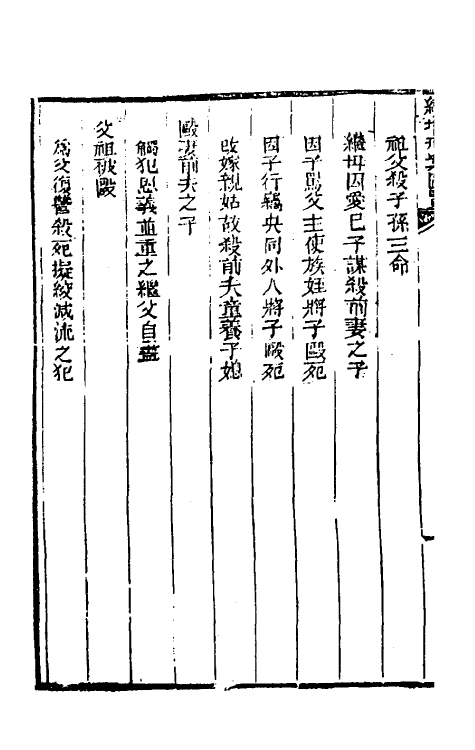 祖父殺子孫三命
繼母因愛己子謀殺前妻之子
因子罵父主使族姪將子毆死
因子行竊央同外人將子毆死
改嫁親姑故殺前夫童養子媳
毆妻前夫之子
觸犯恩義並重之繼父自盡
父祖被毆
為父復讐殺死擬絞減流之犯